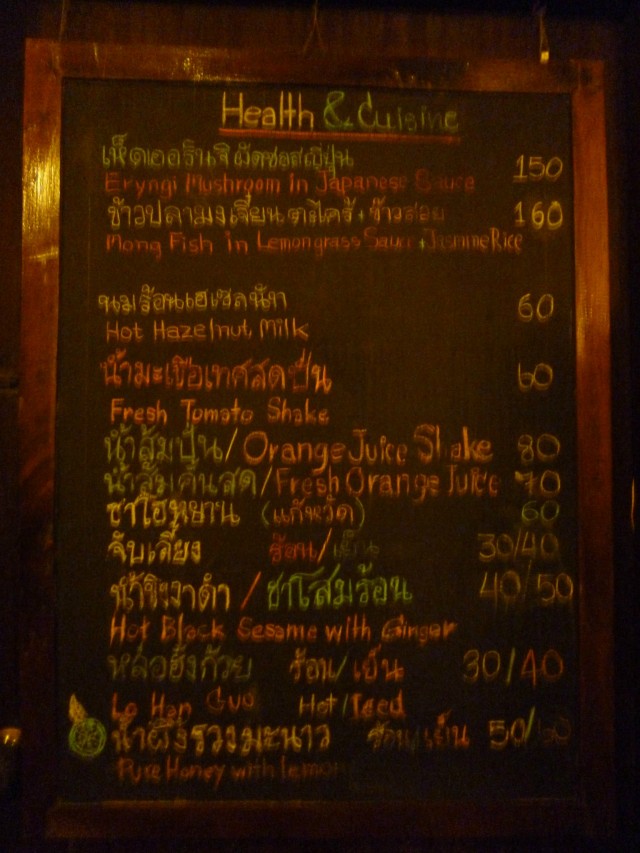 Health & Cuisine
เห็ดเออรินจิผัดซอสญี่ปุ่น 150
Eryngi Mushroom in Japanese Sauce
ข้าวปลามงเจี๋ยนตะไคร้ + ข้าวสวย 160
Mong Fish in Lemongrass Sauce + Jasmine Rice
นมร้อนเฮเซลนัท 60
Hot Hazelnut Milk
น้ำมะเขือเทศสดปั่น 60
Fresh Tomato Shake
น้ำส้มปั่น / Orange Juice Shake 80
น้ำส้มคั้นสด / Fresh Orange Juice 70
ชาไฮหยาน (แก้หวัด) 60
จับเลี้ยง ร้อน/เย็น 30/40
น้ำขิงงาดำ / ชาโสมร้อน 40/50
Hot Black Sesame with Ginger
หล่อฮั้งก้วย ร้อน/เย็น 30/40
Lo Han Guo Hot/Iced
น้ำผึ้งรวงมะนาว ร้อน/เย็น 50/60
Pure Honey with lemon